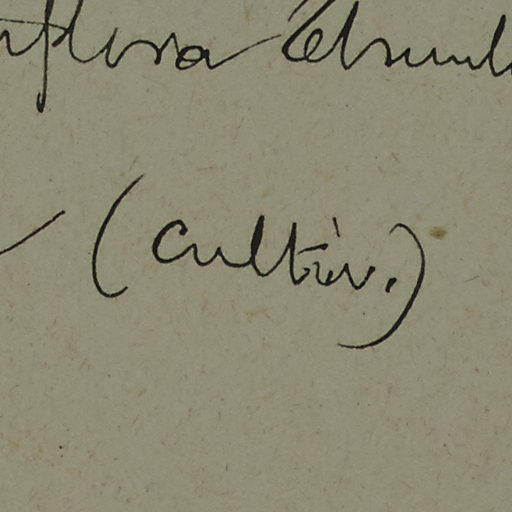 flora Thunb
(cultiv.)